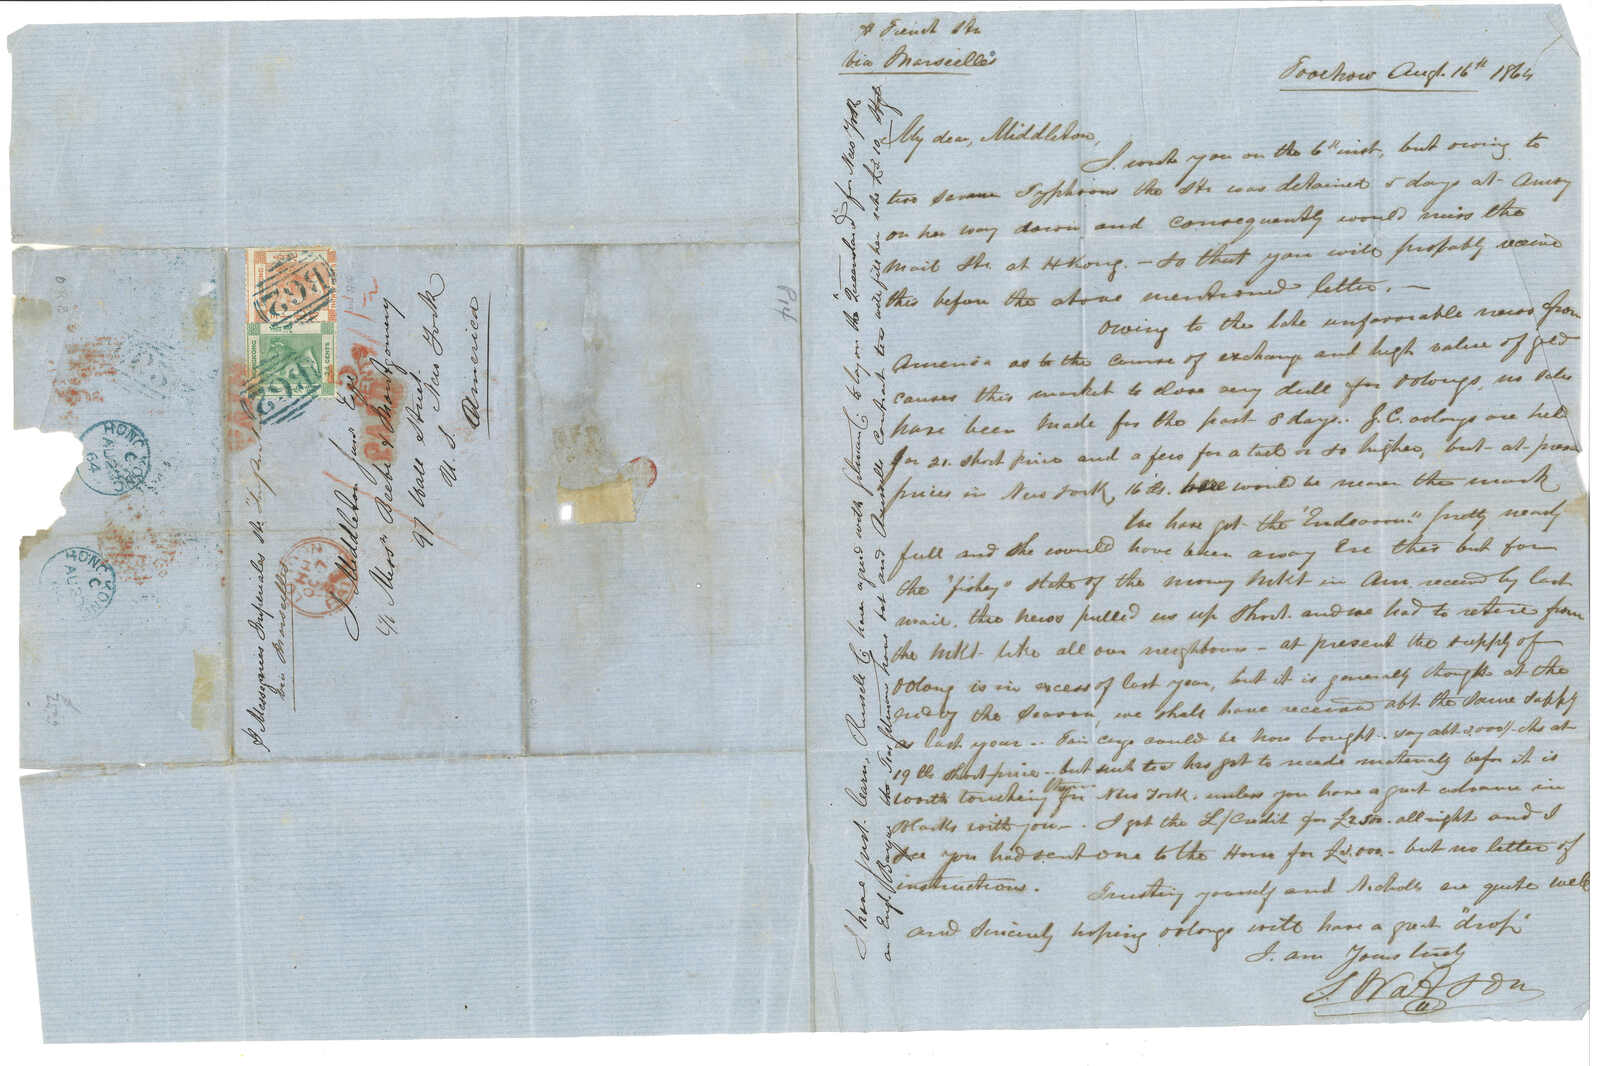 French Str
via Marseilles
Foochow Augt. 16th 1864
My dear, Middleton,
I wrote you on the 6th inst, but owing to
two severe Typhoons the Str was detained 5 days at Amoy
on her way down and consequently would miss the
mail Str. at HKong. - So that you will probably receive
this before the above mentioned letter. -
Owing to the late unfavorable news from
America as to the course of exchange and high value of gold
causes this market to close very dull for Oolongs, no sales
have been made for the past 8 days. G.C. oolongs are held
for 21. short price and a few for a tael or so higher, but at present
prices in New York 16 would be nearer the mark
We have got the "Endeavour" pretty nearly
full and she would have been away Ere this but for
the "fishy" state of the money Mkt in Am. received by last
mail, the news pulled us up Short. and we had to retire from
the Mkt like all our neighbours - at present the supply of
Oolong is in excess of last year, but it is generally thought at the
end of the Season, we shall have received abt the same supply
as last year - Fair cargo could be now bought. say abt 2,000 chs at
19 short price - but such tea has got to recede materially before it is
worth touching for New York. unless you have a great advance in
Blacks with you -. I got the L/Credit for £2500. all right and I
see you had sent one to the House for - but no letter of
instructions. Trusting yourself and Nichols are quite well
and Sincerely hoping oolongs will have a great "drop"
I am Yours truly
J. Watson
I have just learn, Russell & Co have agreed with Gilman & Co to lay on the "Queensland" for New York
an Engl. Barque the Teas Gilmans have bot and Russells contract too will fill her up. 10 Sept
Messageries Imperiales Str.
via Marseilles
J. Middleton Junr Esqr
c/o Messrs Beebe & Montgomery
97 Wall Street
New York
U. S.
America
HONGKONG
24 CENTS
B62
B62
PAID
HONG KONG
C
AU 25
64
HONG KONG
C
AU 25
P14